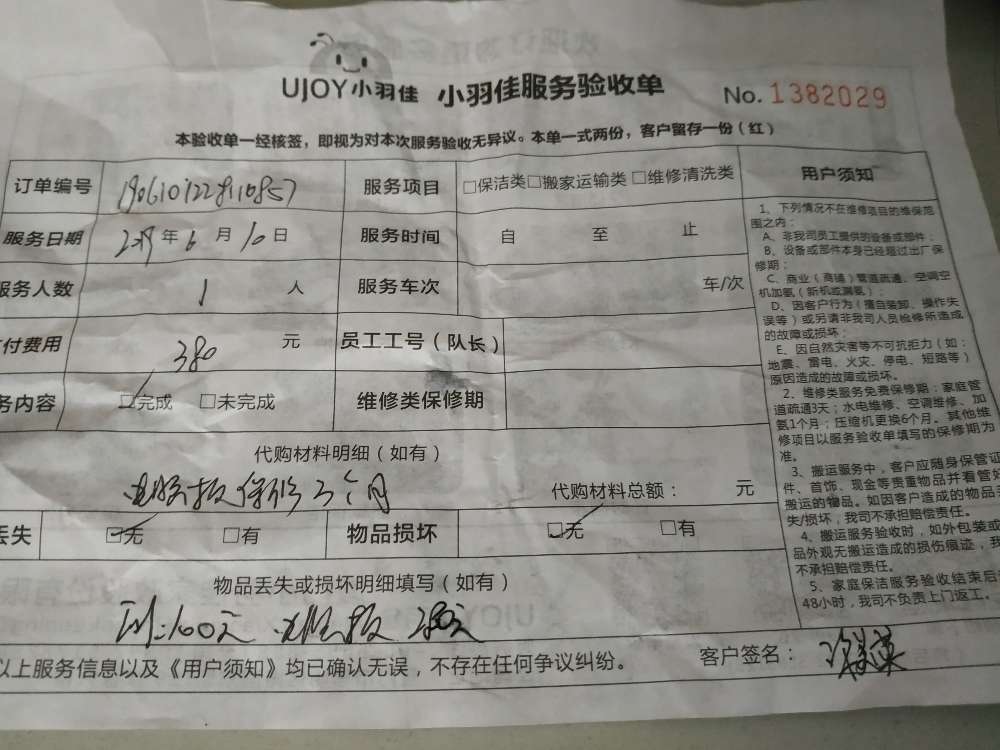 UJOY小羽佳 小羽佳服务验收单 No. 1382029
本验收单一经核签，即视为对本次服务验收无异议。本单一式两份，客户留存一份（红）
订单编号 服务项目 □保洁类□搬家运输类□维修清洗类
服务日期 2019年6月10日 服务时间 自 至 止
服务人数 1 人 服务车次 车/次
付费用 380 元 员工工号（队长）
务内容 □完成 □未完成 维修类保修期
代购材料明细（如有）
电脑板保修3个月 代购材料总额： 元
丢失 □无 □有 物品损坏 □无 □有
物品丢失或损坏明细填写（如有）
100元 电脑板 280元
以上服务信息以及《用户须知》均已确认无误，不存在任何争议纠纷。 客户签名：
用户须知
1、下列情况不在维修项目的维保范
围之内：
A、非我司员工提供的设备或部件；
B、设备或部件本身已经超过出厂保
修期；
C、商业（商铺）管道疏通、空调空
机加氨（新机或漏氨）；
D、因客户行为（擅自装卸、操作失
误等）或另请非我司人员检修所造成
的故障或损坏；
E、因自然灾害等不可抗拒力（如：
地震、雷电、火灾、停电、短路等）
原因造成的故障或损坏。
2、维修类服务免费保修期：家庭管
道疏通3天；水电维修、空调维修、加
氨1个月；压缩机更换6个月。其他维
修项目以服务验收单填写的保修期为
准。
3、搬运服务中，客户应随身保管证
件、首饰、现金等贵重物品并看管好
搬运的物品。如因客户造成的物品丢
失/损坏，我司不承担赔偿责任。
4、搬运服务验收时，如外包装或
品外观无搬运造成的损伤痕迹，我
不承担赔偿责任。
5、家庭保洁服务验收结束后
48小时，我司不负责上门返工。